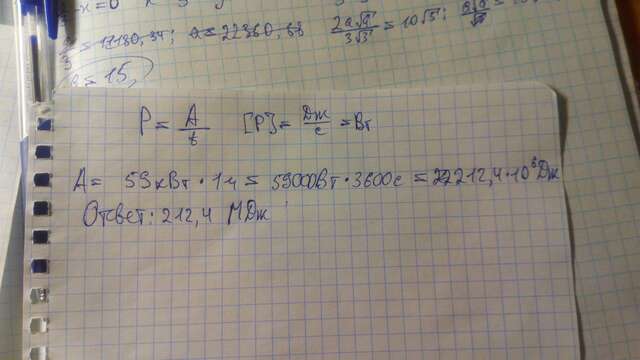 -x=0
= 17180,34; a = 22360,68 2a√a / 3√3 = 10√5;
a = 15,
P = A/t [P] = Дж/с = Вт
A = 59кВт · 1ч = 59000Вт · 3600с = 212,4·10⁶Дж
Ответ: 212,4 МДж